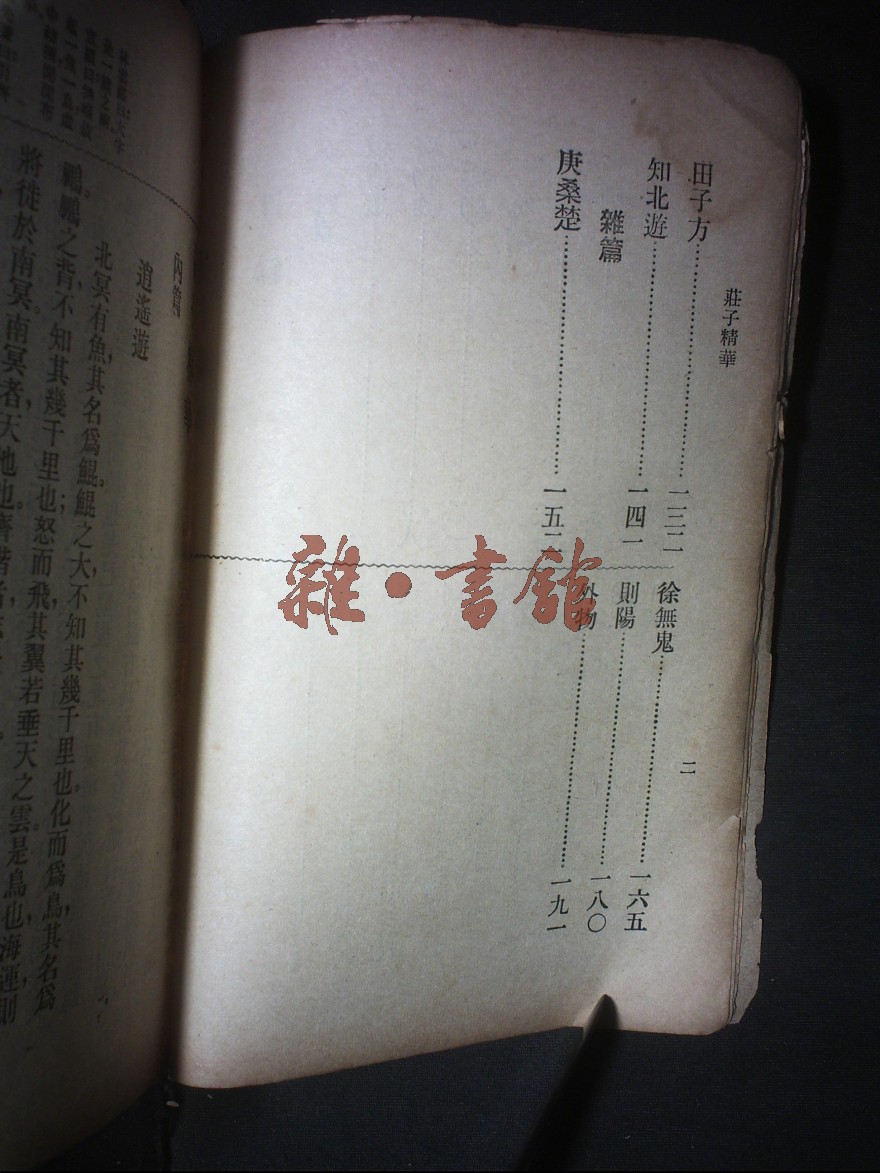 莊子精華
二
田子方……一三二
知北遊……一四一
雜篇
庚桑楚……一五二
徐無鬼……一六五
則陽……一八〇
外物……一九一
雜·書館
內篇
逍遙遊
北冥有魚，其名爲鯤。鯤之大，不知其幾千里也。化而爲鳥，其名爲
鵬。鵬之背，不知其幾千里也；怒而飛，其翼若垂天之雲。是鳥也，海運則
將徙於南冥。南冥者，天池也。齊諧者，